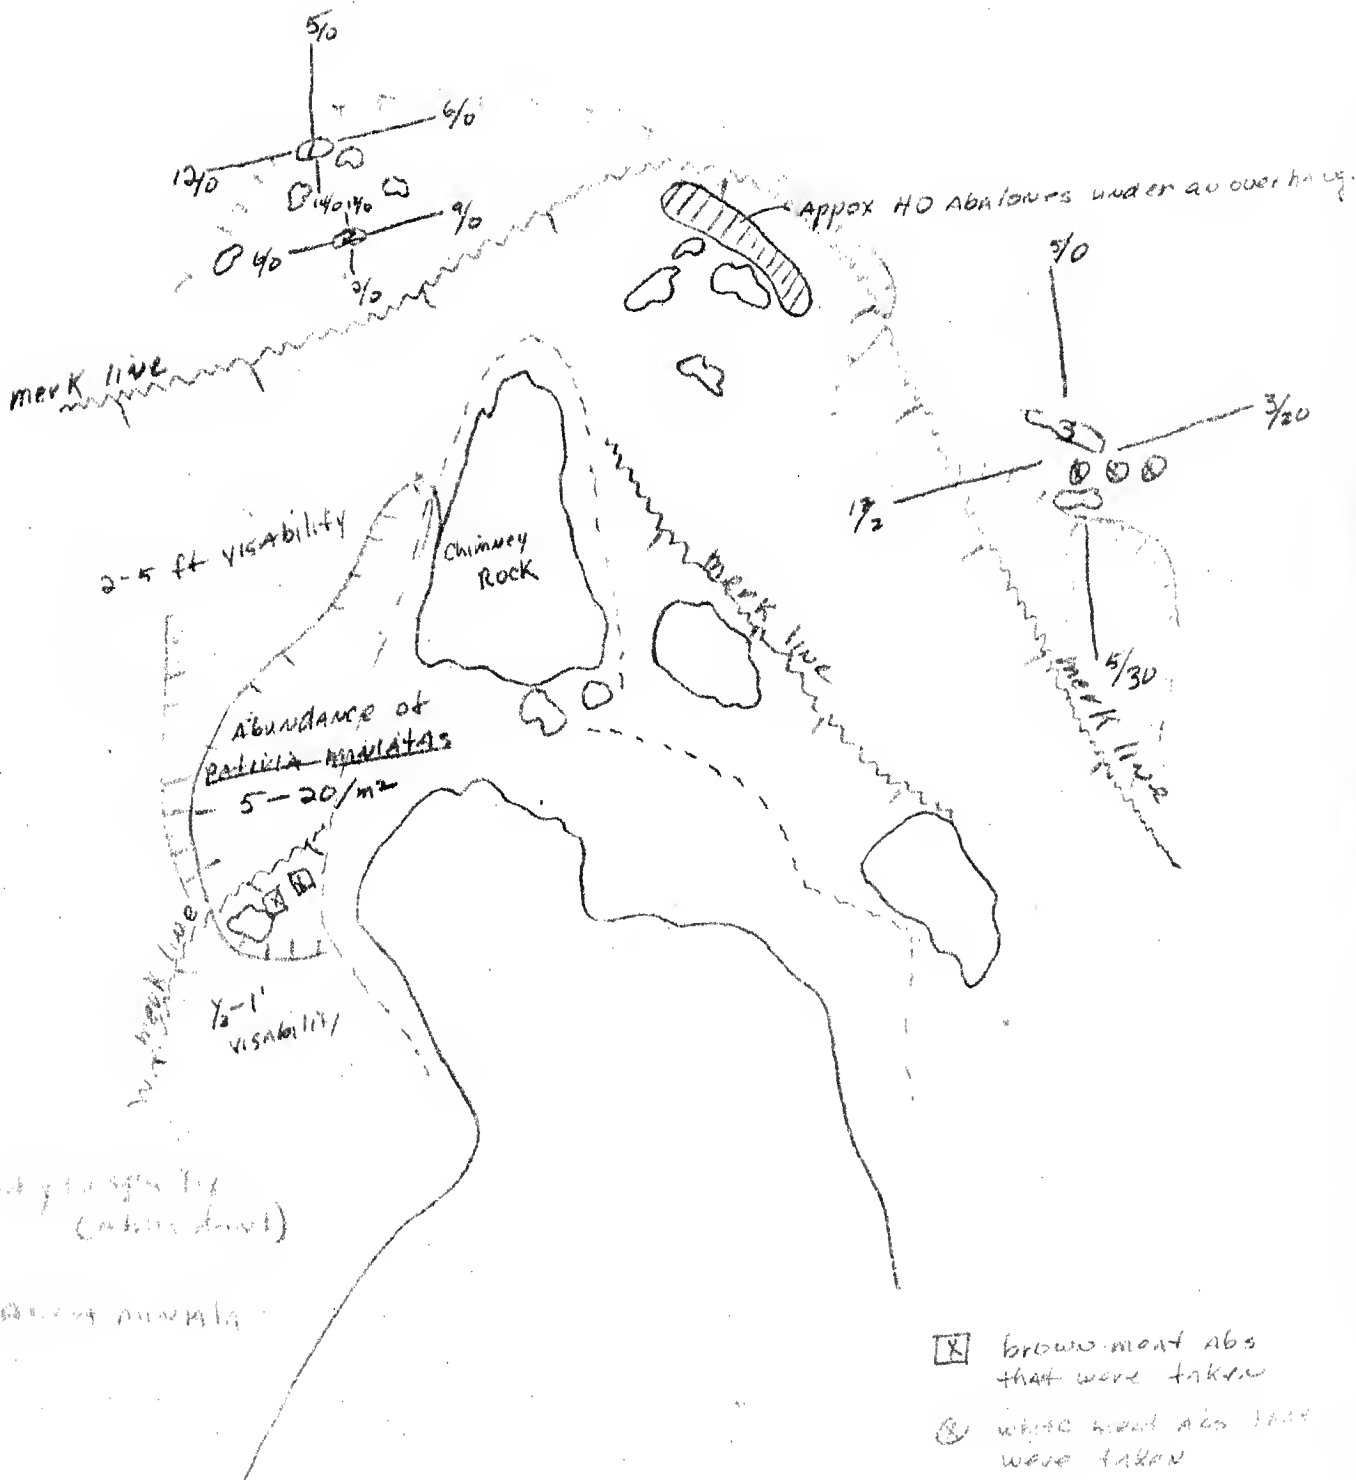 5/0
6/0
12/0
14/0 14/0
9/0
6/0
2/0
merk line
Appox 40 Abalones under an overhang.
5/0
3
3/20
17/2
5/30
merk line
merk line
2-5 ft visability
Chimney
Rock
Abundance of
Patiria miniatas
5-20/m²
merk line
½-1'
visability
brown meat Abs
that were taken
white meat Abs that
were taken